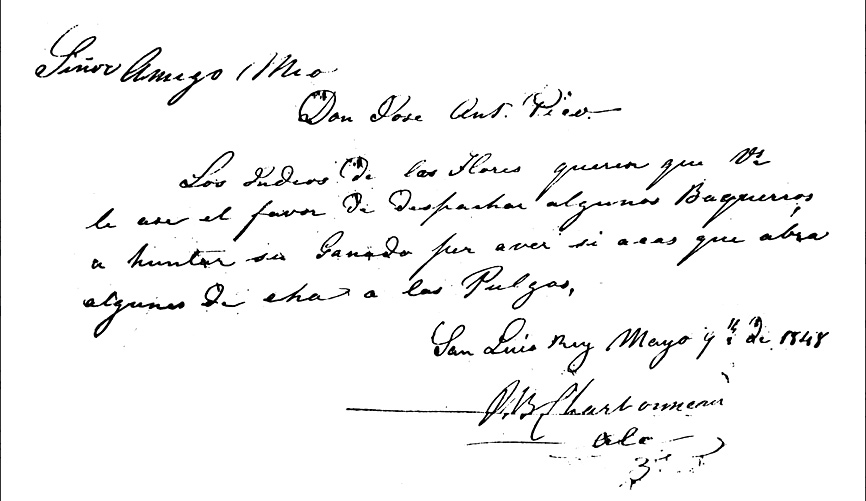 Señor Amigo Mio
Don Jose Ant. Pico.
Los Indios de las Flores queren que Vs
le ase el favor de despachar algunos Baquerros
a huntar su Ganado per aver si acas que abra
algunos de eha a las Pulgas,
San Luis Rey Mayo 9 de 1848
J. B. Charbonneau